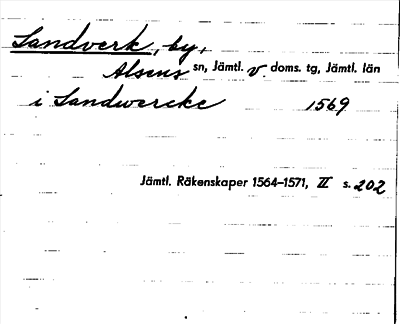 Sandverk, by,
Alsens sn, Jämtl. v. doms. tg, Jämtl. län
i Sandwercke 1569
Jämtl. Räkenskaper 1564–1571, II s. 202